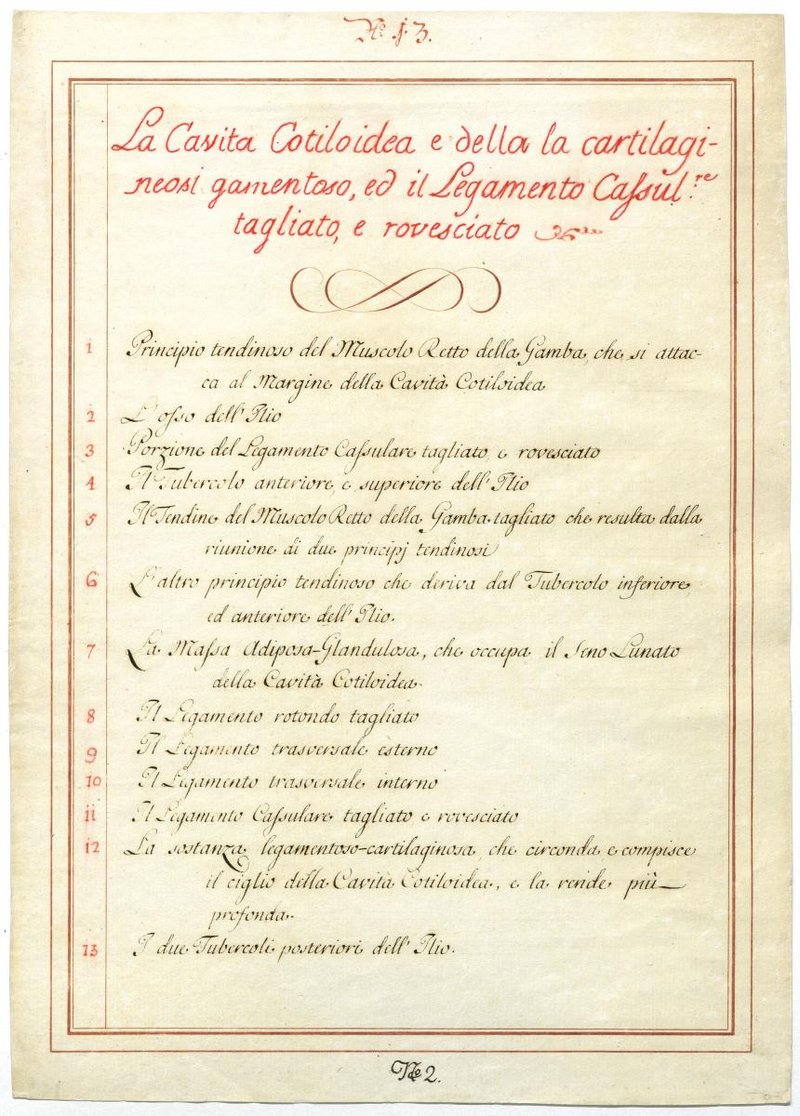 No. 13.
La Cavita Cotiloidea e della la cartilagi-
neosi gamentoso, ed il Legamento Caſsul.re
tagliato, e rovesciato
1 Principio tendinoso del Muscolo Retto della Gamba, che si attac-
ca al Margine della Cavità Cotiloidea
2 L'oſso dell'Ilio
3 Porzione del Legamento Caſsulare tagliato e rovesciato
4 Il Tubercolo anteriore e superiore dell'Ilio
5 Il Tendine del Muscolo Retto della Gamba tagliato che resulta dalla
riunione di due principj tendinosi
6 L'altro principio tendinoso che deriva dal Tubercolo inferiore
ed anteriore dell'Ilio.
7 La Maſsa Adiposa-Glandulosa, che occupa il Seno Lunato
della Cavità Cotiloidea.
8 Il Legamento rotondo tagliato
9 Il Legamento trasversale esterno
10 Il Legamento trasversale interno
11 Il Legamento Caſsulare tagliato e rovesciato
12 La sostanza legamentoso-cartilaginosa, che circonda e compisce
il ciglio della Cavità Cotiloidea, e la rende più
profonda.
13 I due Tubercoli posteriori dell'Ilio.
No 2.